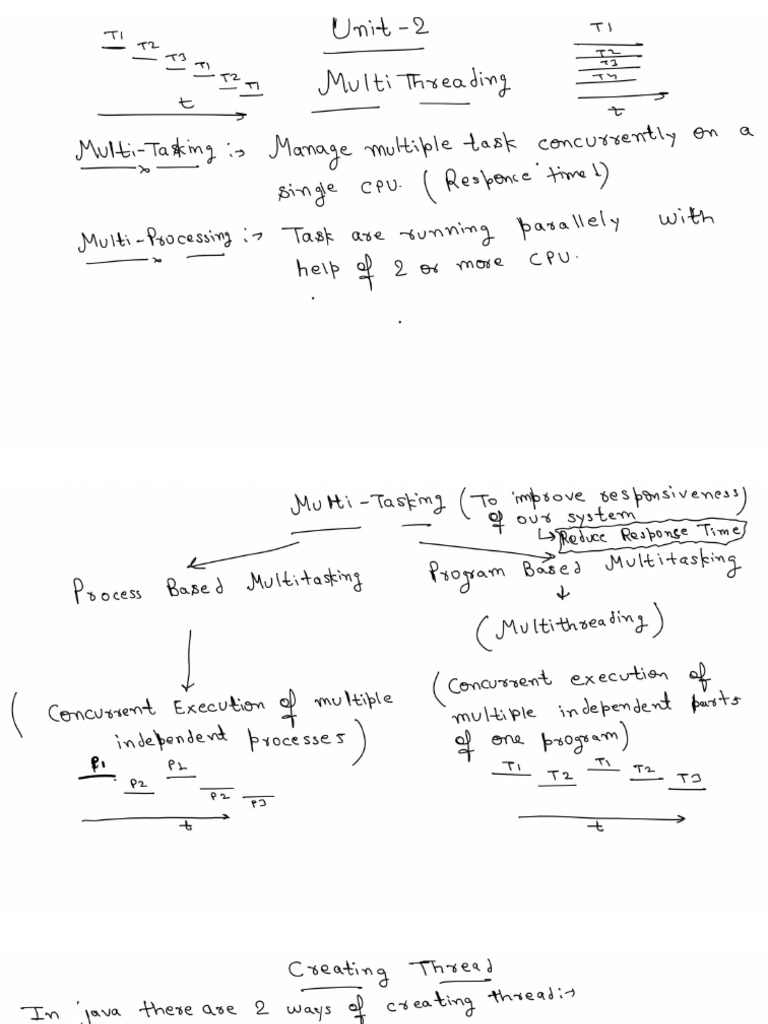 Unit-2
T1
T2
T3
T1
T2
T1
t
Multi Threading
T1
T2
T3
T4
t
Multi-Tasking :→ Manage multiple task concurrently on a
single CPU. (Responce time↓)
Multi-Processing :→ Task are running parallely with
help of 2 or more CPU.
Multi-Tasking (To improve responsiveness)
of our system
↳ Reduce Response Time
Process Based Multitasking
Program Based Multitasking
(Multithreading)
(Concurrent Execution of multiple
independent processes)
(Concurrent execution of
multiple independent parts
of one program)
P1 P2 P1 P2 P3
t
T1 T2 T1 T2 T3
t
Creating Thread
In java there are 2 ways of creating thread:→